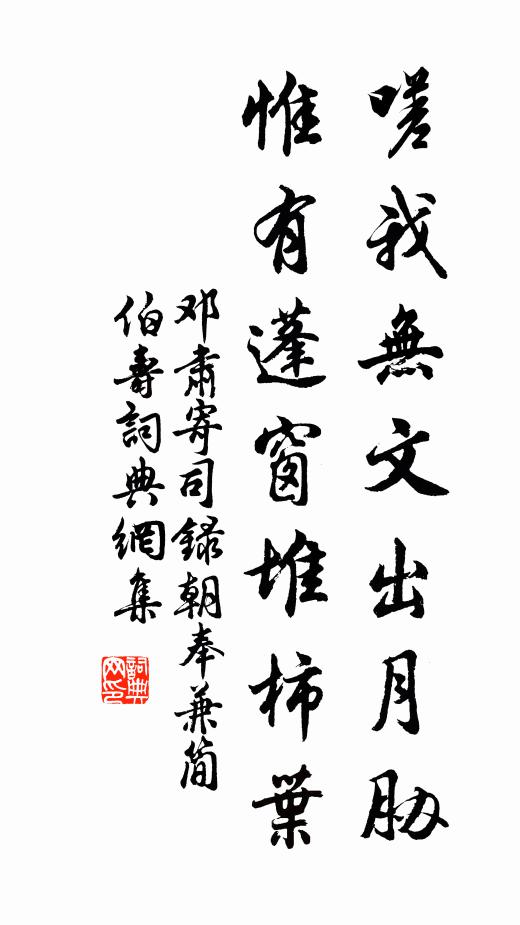 嗟我無文出月胁
惟有蓬窗堆柿葉
邓肃寄司録朝奉兼简
伯壽詞典網集
詞典网印